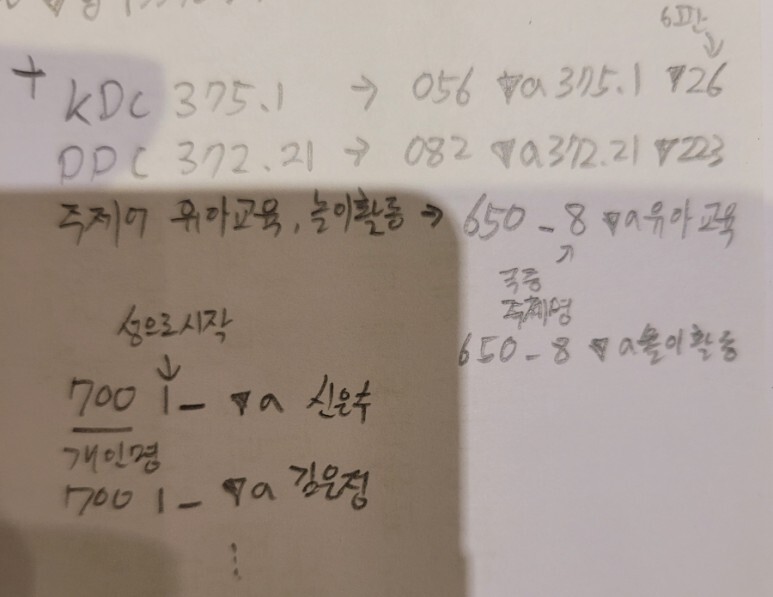 6판
↓
+ KDC 375.1 → 056 ▼a375.1 ▼26
DDC 372.21 → 082 ▼a372.21 ▼223
주제어 유아교육, 놀이활동 → 650 _ 8 ▼a유아교육
↗
국중
주제명
650 _ 8 ▼a놀이활동
성으로시작
↓
700 1 _ ▼a 신은수
개인명
700 1 _ ▼a 김은정
⋮